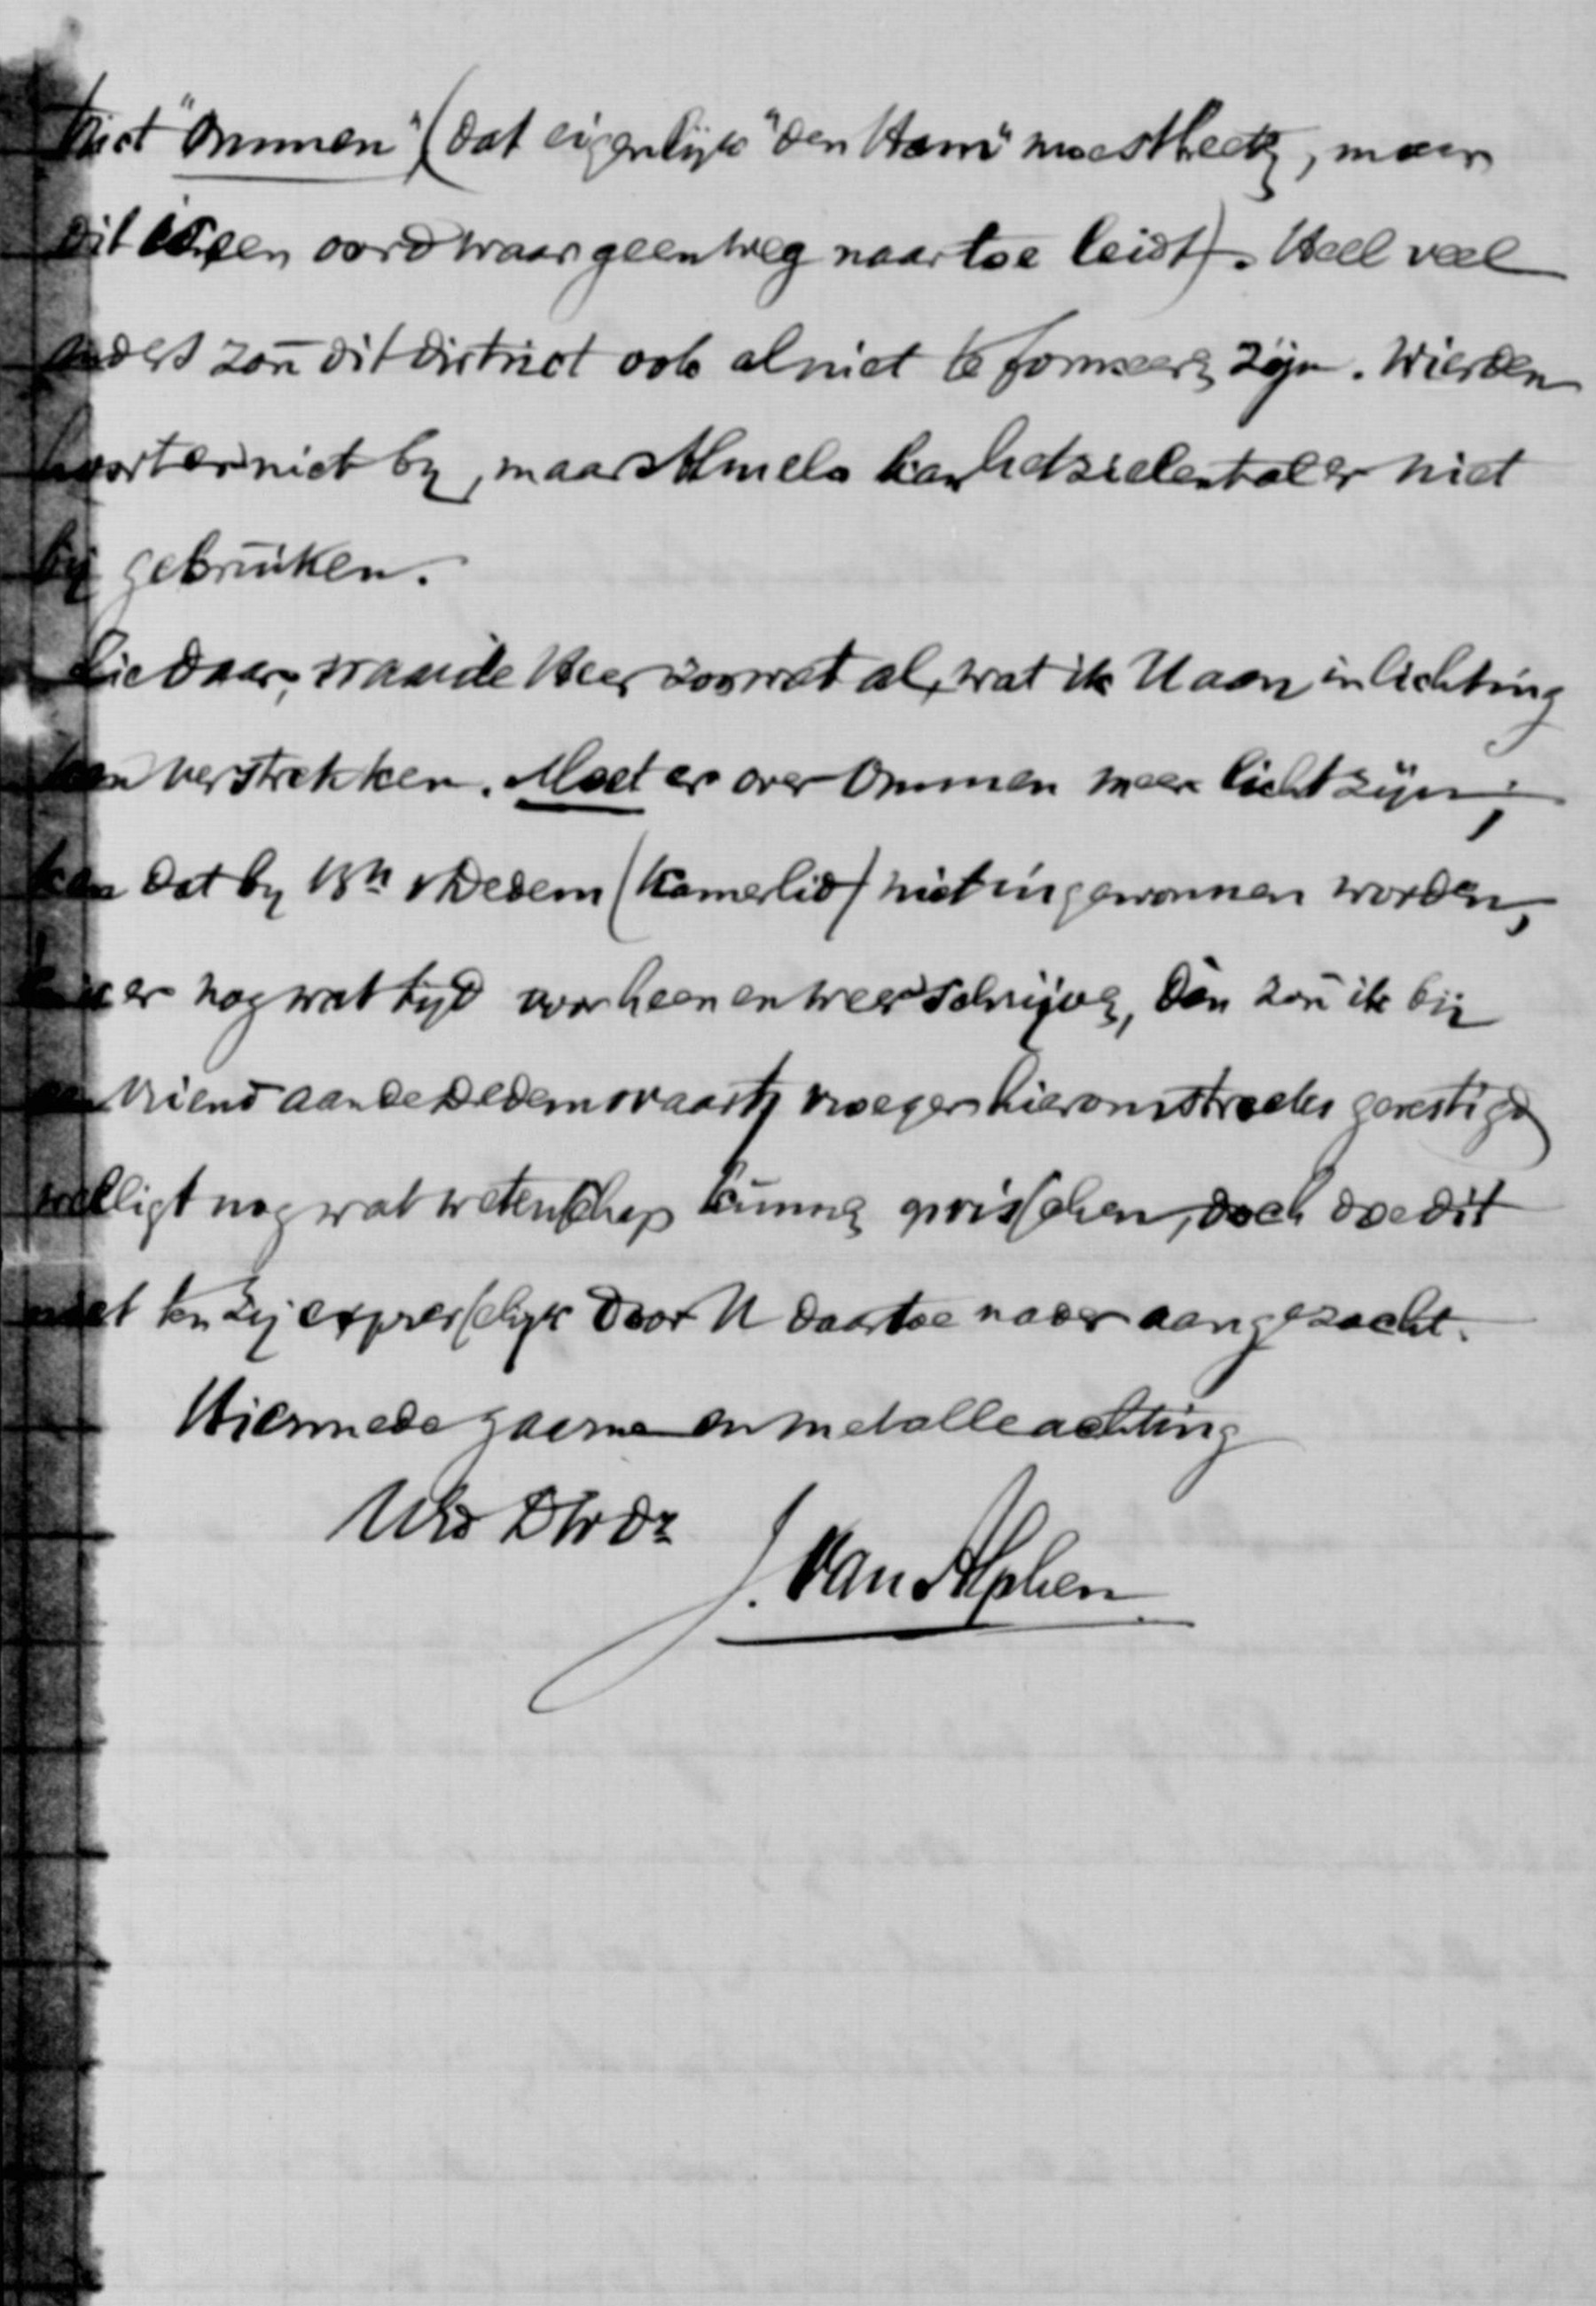 trict "Ommen" (dat eigenlijk "den Ham" moest heeten, maar
dit is een oord waar geen weg naar toe leidt). Heel veel
anders zou dit district ook al niet te formeeren zijn. Wierden
hoort er niet by, maar Almelo kan het zielental er niet
bij gebruiken.
Ziedaar, waarde Heer zoowat al, wat ik U aan inlichting
kan verstrekken. Moet er over Ommen meer licht zijn,
kan dat by Bn v Dedem (Kamerlid) niet ingewonnen worden,
is er nog wat tyd voor heen en weer schrijven, dan zou ik bij
een vriend aan de Dedemsvaart, vroeger hieromstreeks gevestigd
welligt nog wat wetenschap kunnen opvisschen, doch doe dit
niet ten zij expresselyk door U daartoe nader aangezocht.
Hiermede gaarne en met alle achting
UEd DW Dr
J. van Alphen